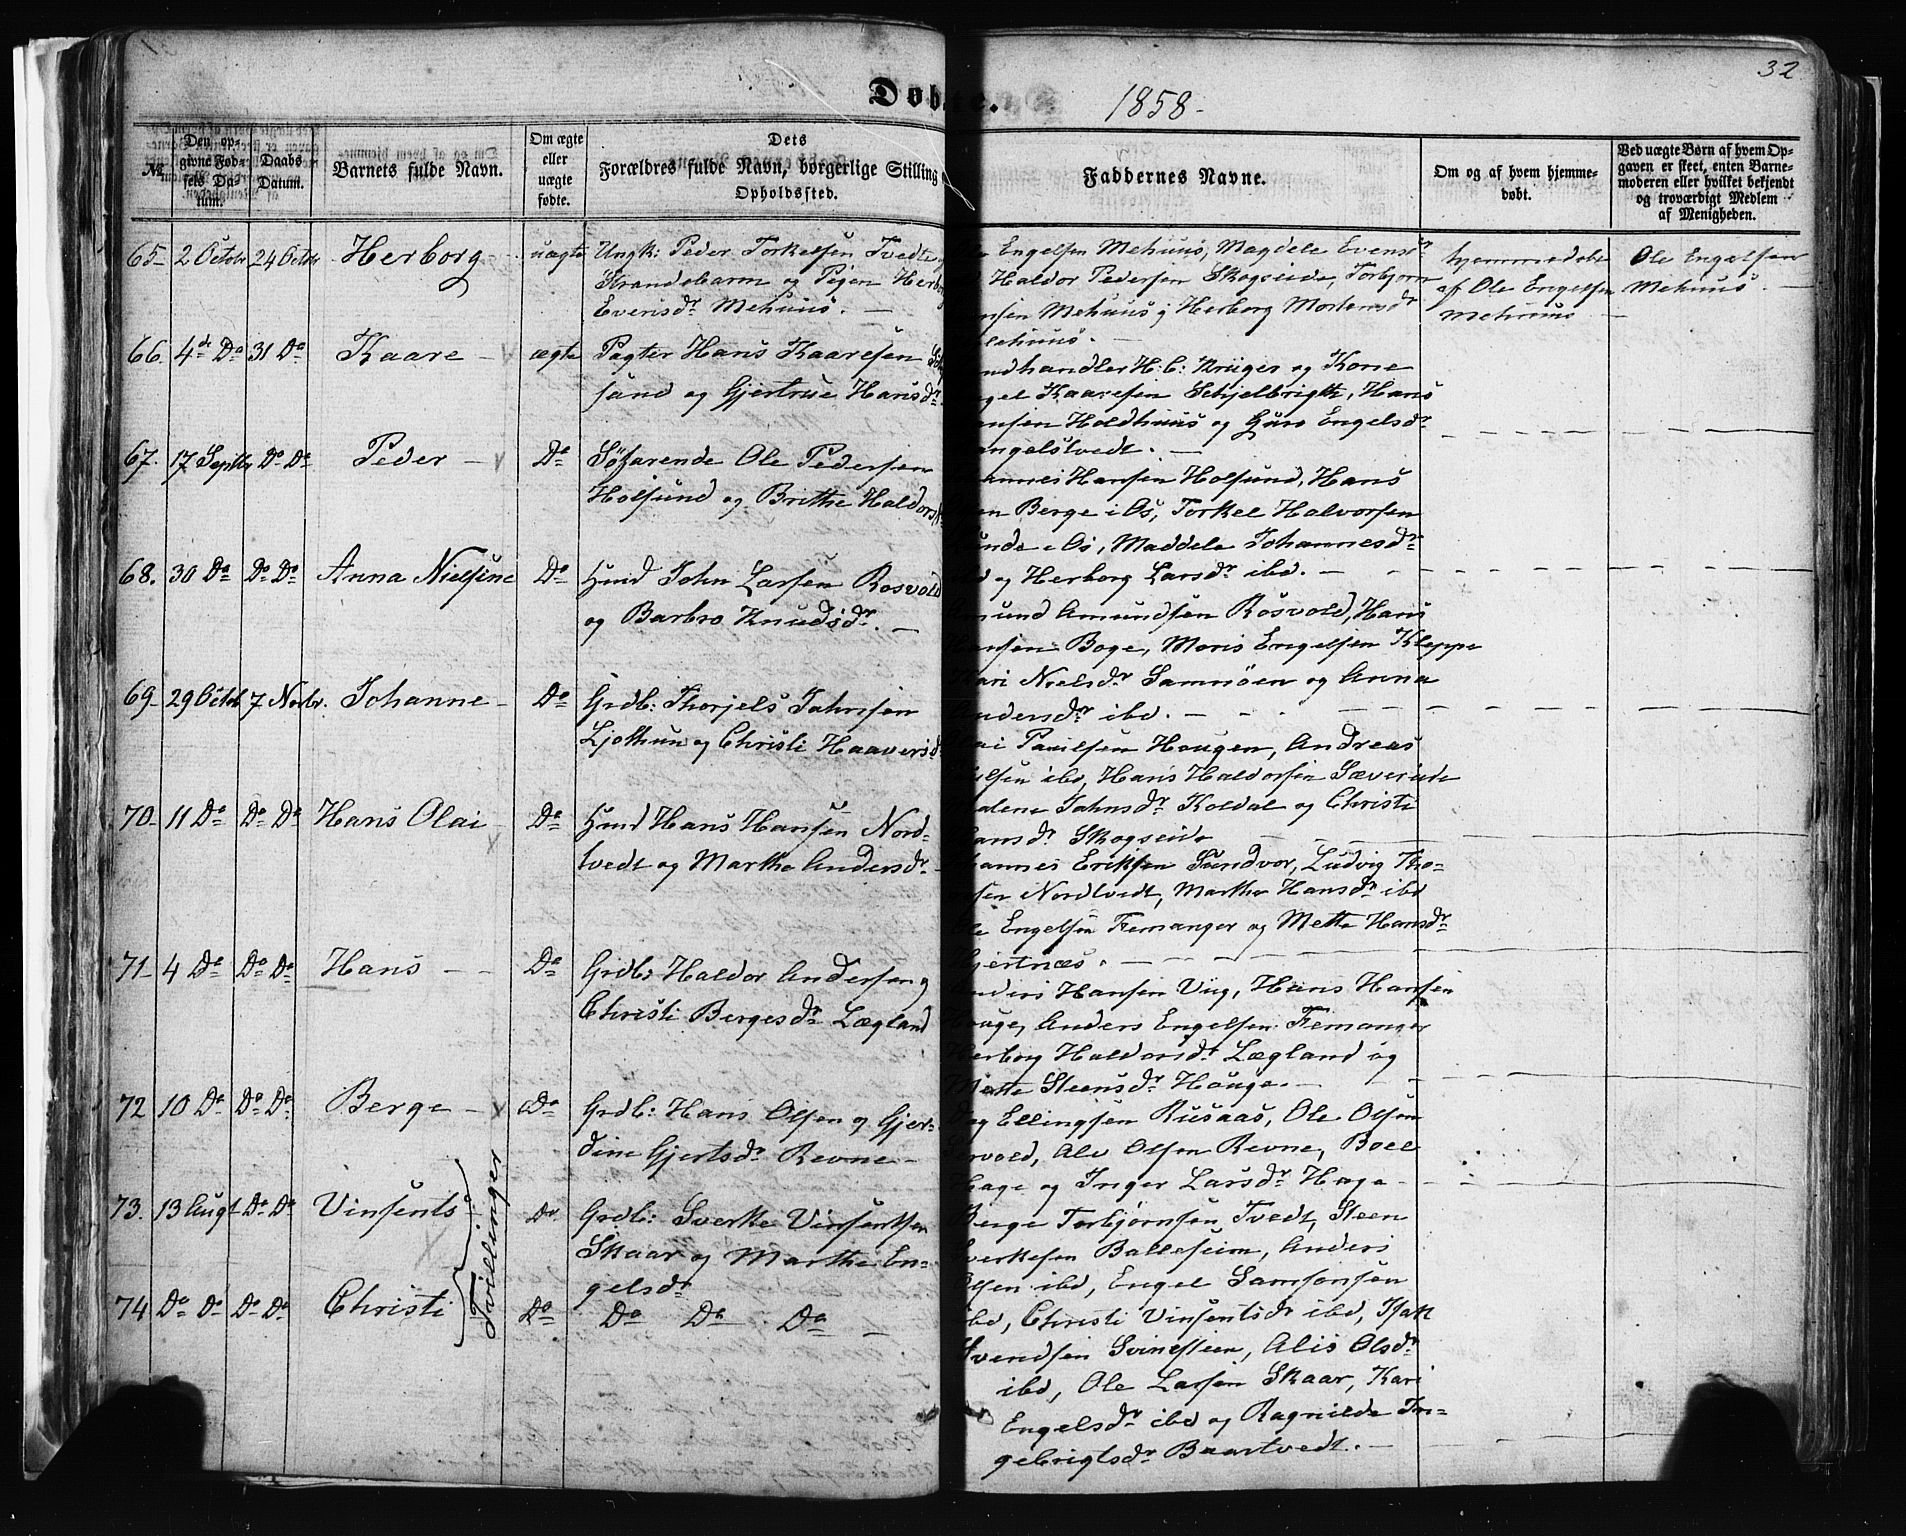 32
Døbte. 1858.
No.
Den op-
givne Fød-
sels Da-
tum.
Daabs
Datum.
Barnets fulde Navn.
Om ægte
eller
uægte
fødte.
Dets
Forældres fulde Navn, borgerlige Stilling
Opholdssted.
Faddernes Navne.
Om og af hvem hjemme-
døbt.
Ved uægte Børn af hvem Op-
gaven er skeet, enten Barne-
moderen eller hvilket bekjendt
og troværdigt Medlem
af Menigheden.
65 2 Octobr 24 Octbr Herborg uægte Ungk: Peder Torkelsen Tvedte
Strandebarm og Pigen Herborg
Evensdr Mehuus.
Engelsen Mehuus, Magdele Evensdr
Haldor Pedersen Skogseide, Torbjørn
Mehuus og Herborg Mortensdr
hjemmedøbt
af Ole Engelsen
Mehuus
Ole Engelsen
Mehuus
66. 4de Do 31 Do Kaare ægte Pagter Hans Kaaresen
sund og Gjertrue Hansdr
Landhandler H: C: Krüger og Kone
Kaaresen Schjelbrigth, Hans
Holdhuus og Guro Engelsdr
67. 17 Septbr Do Do Peder Do Søfarende Ole Pedersen
Holsund og Brithe Haldorsdr
Hansen Holsund, Hans
Berge i Os, Torkel Halvorsen
Os, Maddele Johannesdr
og Herborg Larsdr ibd.
68. 30 Do Do Do Anna Nielsine Do Hmd John Larsen Rosvold
og Barbro Knudsdr.
Amundsen Rosvold, Hans
Boge, Mons Engelsen Kleppe
Kari Nielsdr Samnøen og Anna
Andersdr ibd.
69 29 Octob 7 Novbr. Johanne Do Grdb: Thorjels Jahnsen
Ljothun og Christi Haaversdr
Paulsen Hougen, Andreas
ibd, Hans Haldorsen Sæverude
Jahnsdr Koldal og Christi
Skogseide
70 11 Do Do Do Hans Olai Do Hmd Hans Hansen Nord-
tvedt og Marthe Andersdr
Eriksen Sundvor, Ludvig Tho-
Nordtvedt, Marthe Hansdr ibd
Engelsen Femanger og Mette Hansdr
Gjertnæs.
71 4 Do Do Do Hans Do Grdb: Haldor Andersen og
Christi Bergesdr Lægland
Anders Hansen Vig, Hans Hansen
Houge, Anders Engelsen Femanger
Herborg Haldorsdr Lægland og
Mette Steensdr Houge.
72 10 Do Do Do Berge Do Grdb: Hans Olsen og Gjer-
dine Gjertsdr Revne
Ellingsen Rusaas, Ole Olsen
Ole Olsen Revne, Boel
Hage og Inger Larsdr Hage
73. 13 Augt Do Do Vinsents Do Grdb: Sverke Vinsentsen
Skaar og Marthe En-
gelsdr
Tvillinger
Berge Torbjørnsen Tvedt, Steen
Sverkesen Balleseim, Anders
Olsen ibd, Engel Samsonsen
74 Do Do Do Do Christi Do Do Do Do
ibd, Christi Vinsentsdr ibd, Isak
Svendsen Svinesteen, Alis Olsdr
ibd, Ole Larsen Skaar, Kari
Engelsdr ibd og Ragnilde In-
gebrigtsdr Baartvedt.